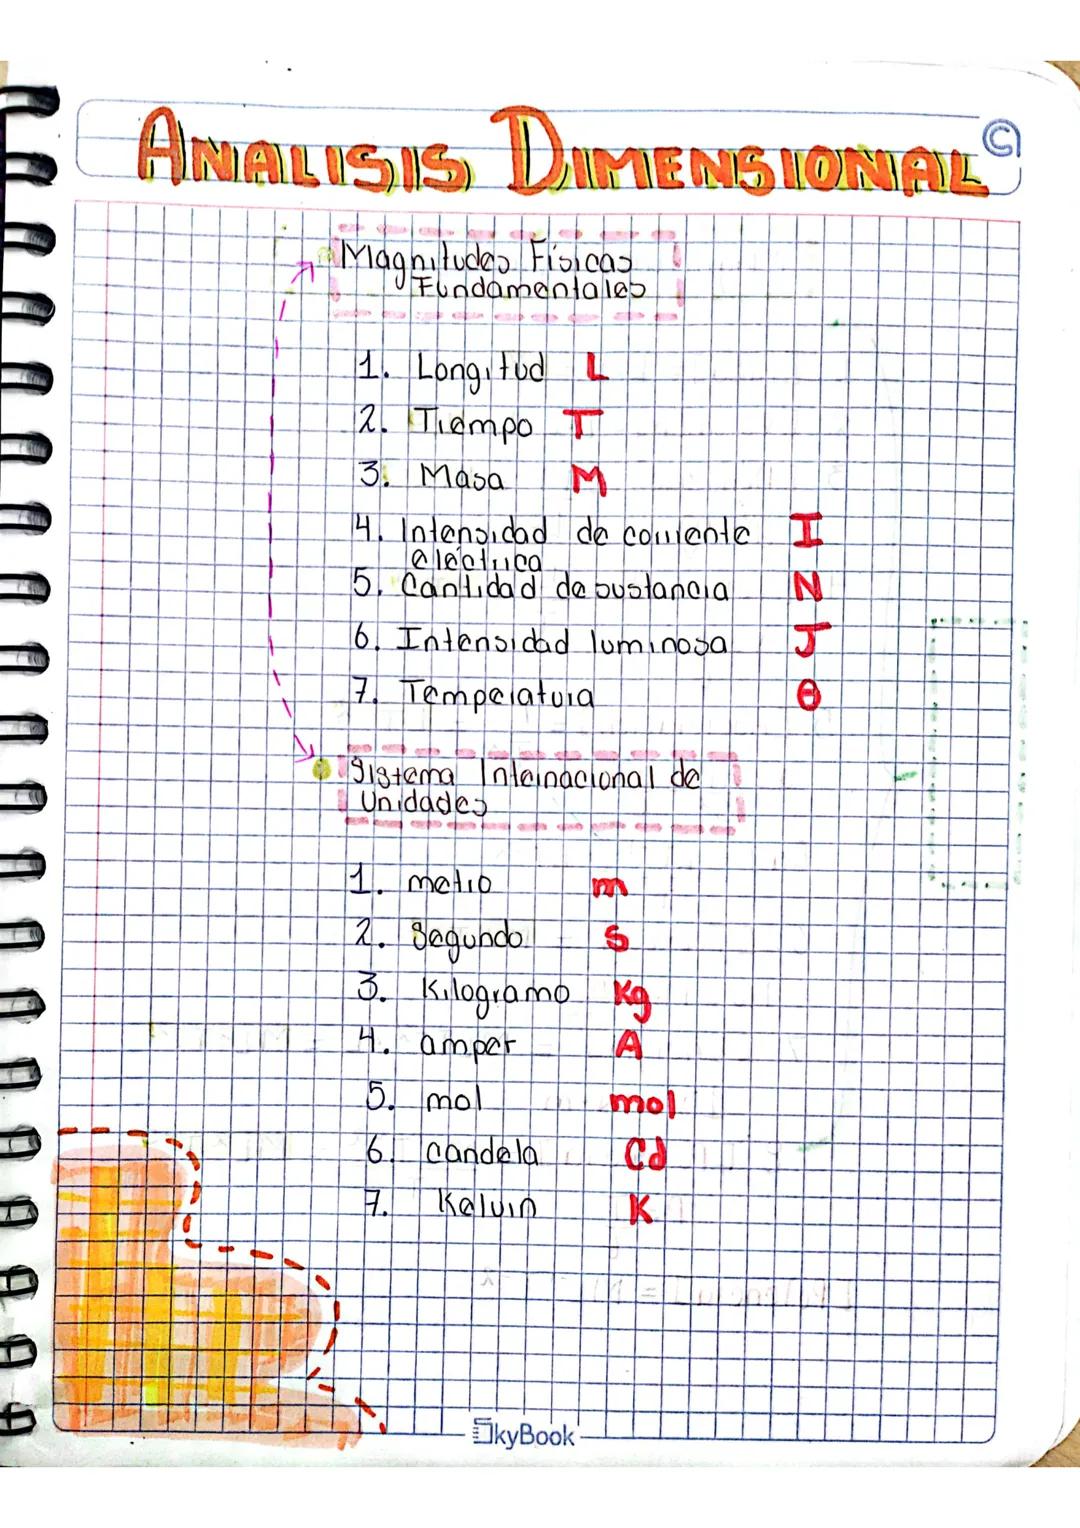 ANALISIS DIMENSIONAL
Magnitudes Físicas
Fundamentales
1. Longitud L
2. Tiempo T
3. Masa M
4. Intensidad de corriente I
eléctrica
5. Cantidad de sustancia N
6. Intensidad luminosa J
7. Temperatura θ
Sistema Internacional de
Unidades
1. metro m
2. Segundo s
3. Kilogramo Kg
4. amper A
5. mol mol
6. candela Cd
7. Kelvin K
SkyBook